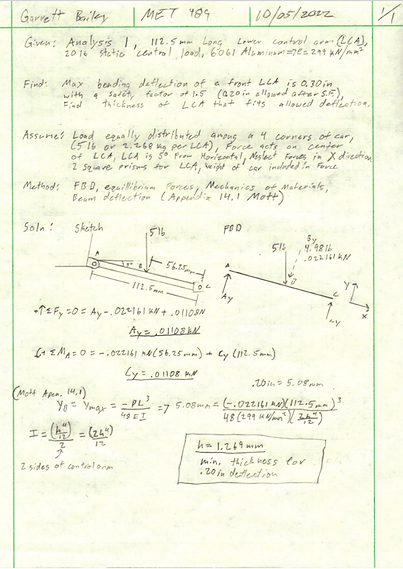 Garrett Bailey | MET 489 | 10/05/2022 | 1/1
Given: Analysis 1, 112.5mm Long Lower control arm (LCA),
20 lb static central load, 6061 Aluminum → E = 299 kN/mm²
Find: Max bending deflection of a front LCA is 0.30in
with a safety factor of 1.5 (0.20in allowed after S.F.)
Find thickness of LCA that fits allowed deflection.
Assume: Load equally distributed among a 4 corners of car,
(5 lb or 2.268 kg per LCA), Force acts on center
of LCA, LCA is 5° from Horizontal, Neglect Forces in X direction
2 square prisms for LCA, weight of car included in Force
Method: FBD, equilibrium Forces, Mechanics of Materials,
Beam deflection (Appendix 14.1 Mott)
Soln: Sketch
5 lb
A
B
C
56.25mm
112.5mm
FBD
5lb
4.981lb
.022161 kN
A
B
C
Ay
Cy
Y
X
+↑ΣFy=0= Ay -.022161 kN + .01108N
Ay = .01108 kN
ΣMA=0= -.022161 kN(56.25mm) + Cy (112.5mm)
Cy = .01108 kN
.20in = 5.08mm
(Mott Apen. 14.1)
yB = ymax = -PL³/48EI => 5.08mm = (-.022161 kN)(112.5mm)³/48(299 kN/mm²)(2h⁴/12)
2 sides of control arm
h = 1.269mm
min. thickness for
.20 in deflection